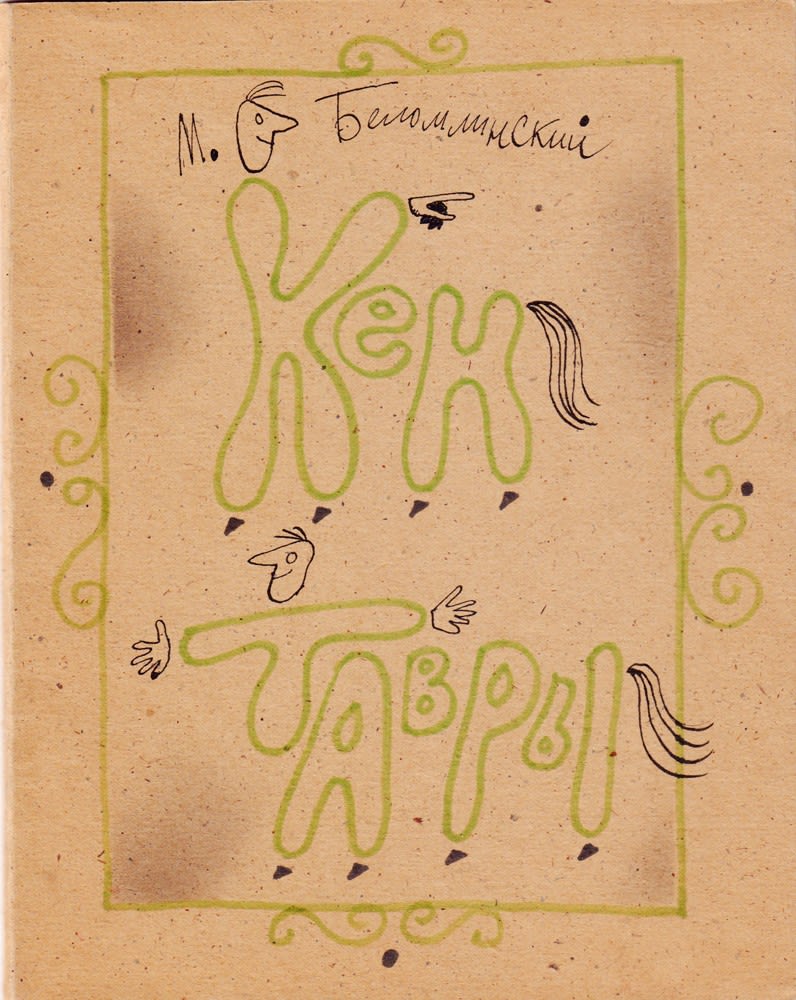 М. Беломлинский
Кен
Тавры